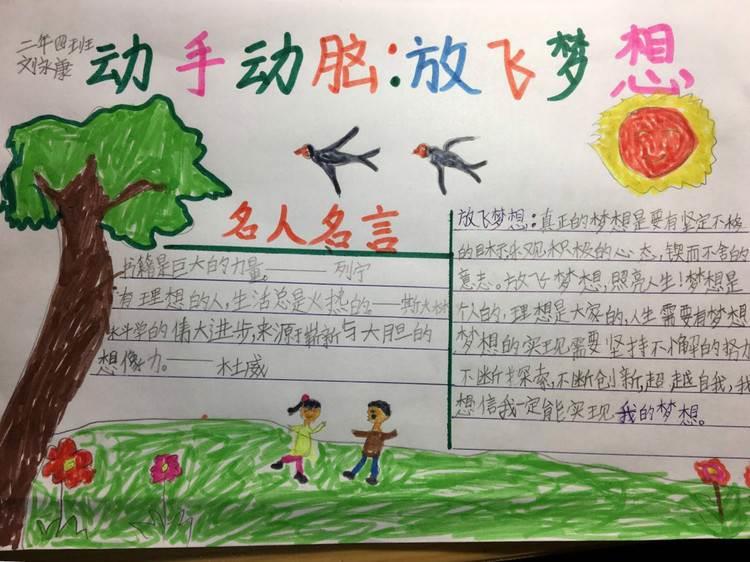 二年四班
刘永康
动手动脑：放飞梦想
名人名言
书籍是巨大的力量。——列宁
有理想的人，生活总是火热的——斯大林
科学的伟大进步，来源于崭新与大胆的
想像力。——杜威
放飞梦想：真正的梦想是要有坚定不移
的目标乐观积极的心态，锲而不舍的
意志。放飞梦想，照亮人生！梦想是
个人的，理想是大家的，人生需要有梦想
梦想的实现需要坚持不懈的努力
不断探索，不断创新，超越自我，我
想信我一定能实现我的梦想。